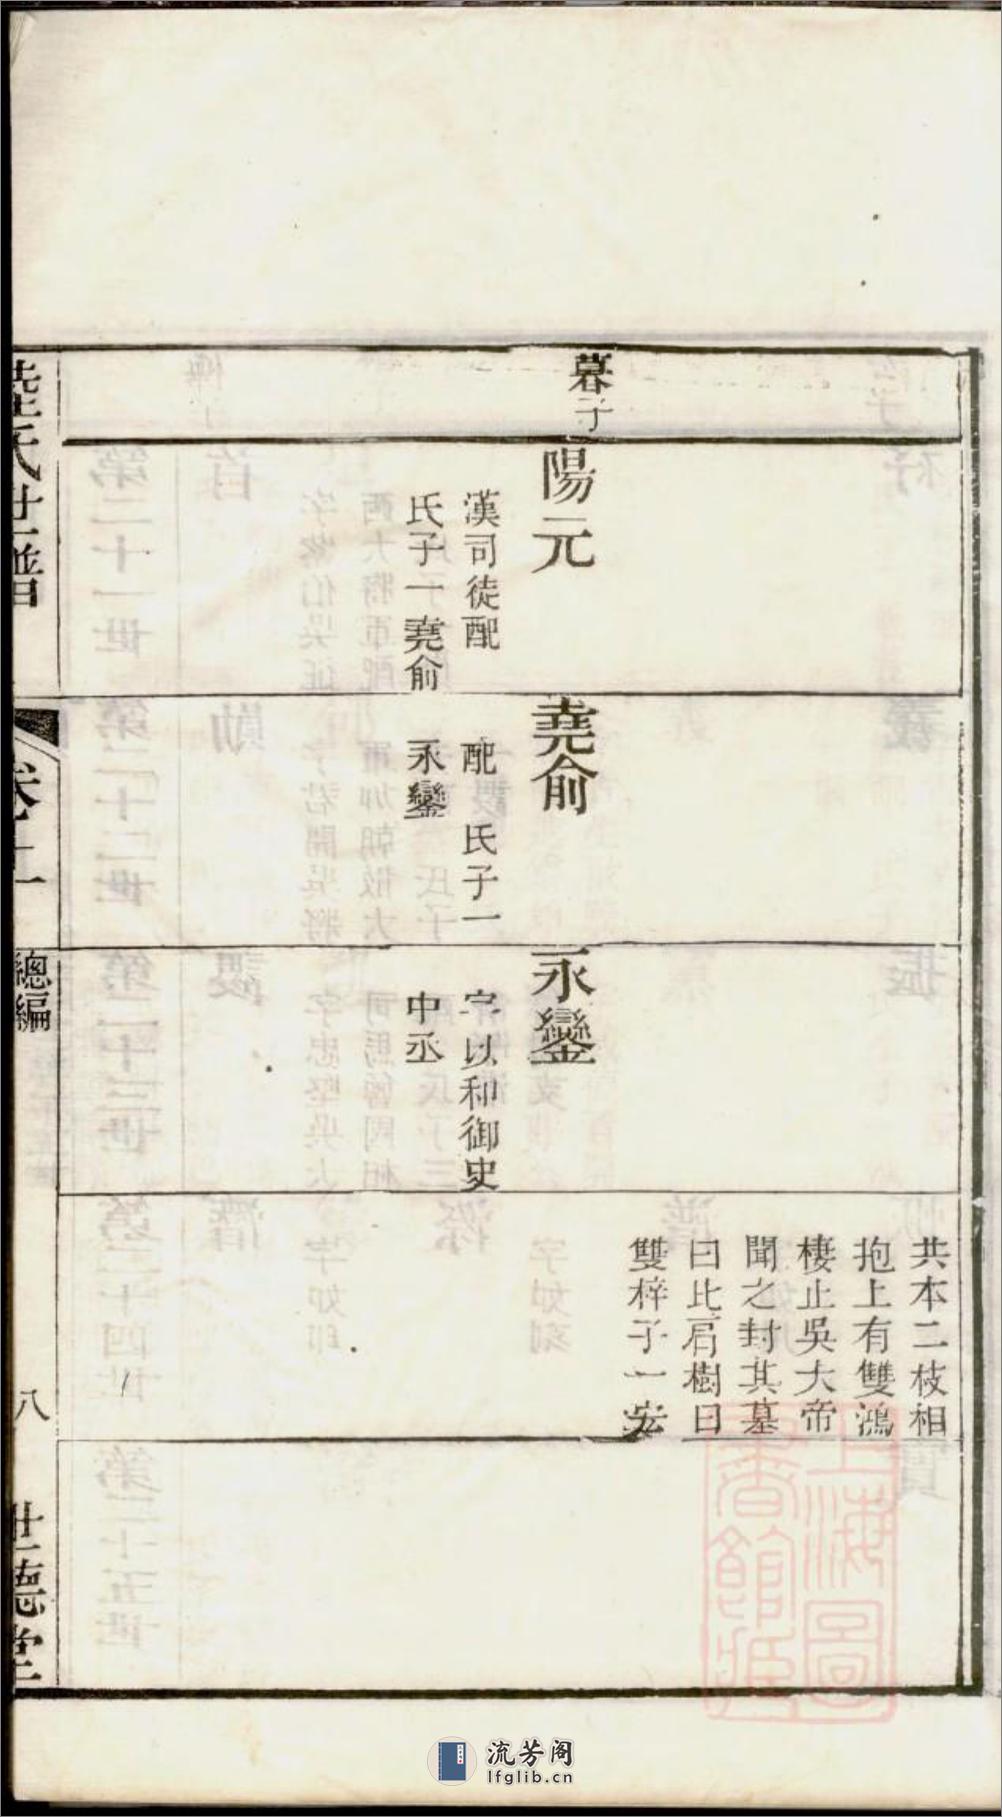 共本二枝相
抱上有雙鴻
棲止吳大帝
聞之封其墓
曰比肩樹曰
雙梓子一安
暮子
陽元
漢司徒配
氏子一堯俞
堯俞
配 氏子一
永鑾
永鑾
字以和御史
中丞
陸氏世譜
卷十一
總編
八
世德堂
上海圖
書館藏
流芳阁
lfglib.cn